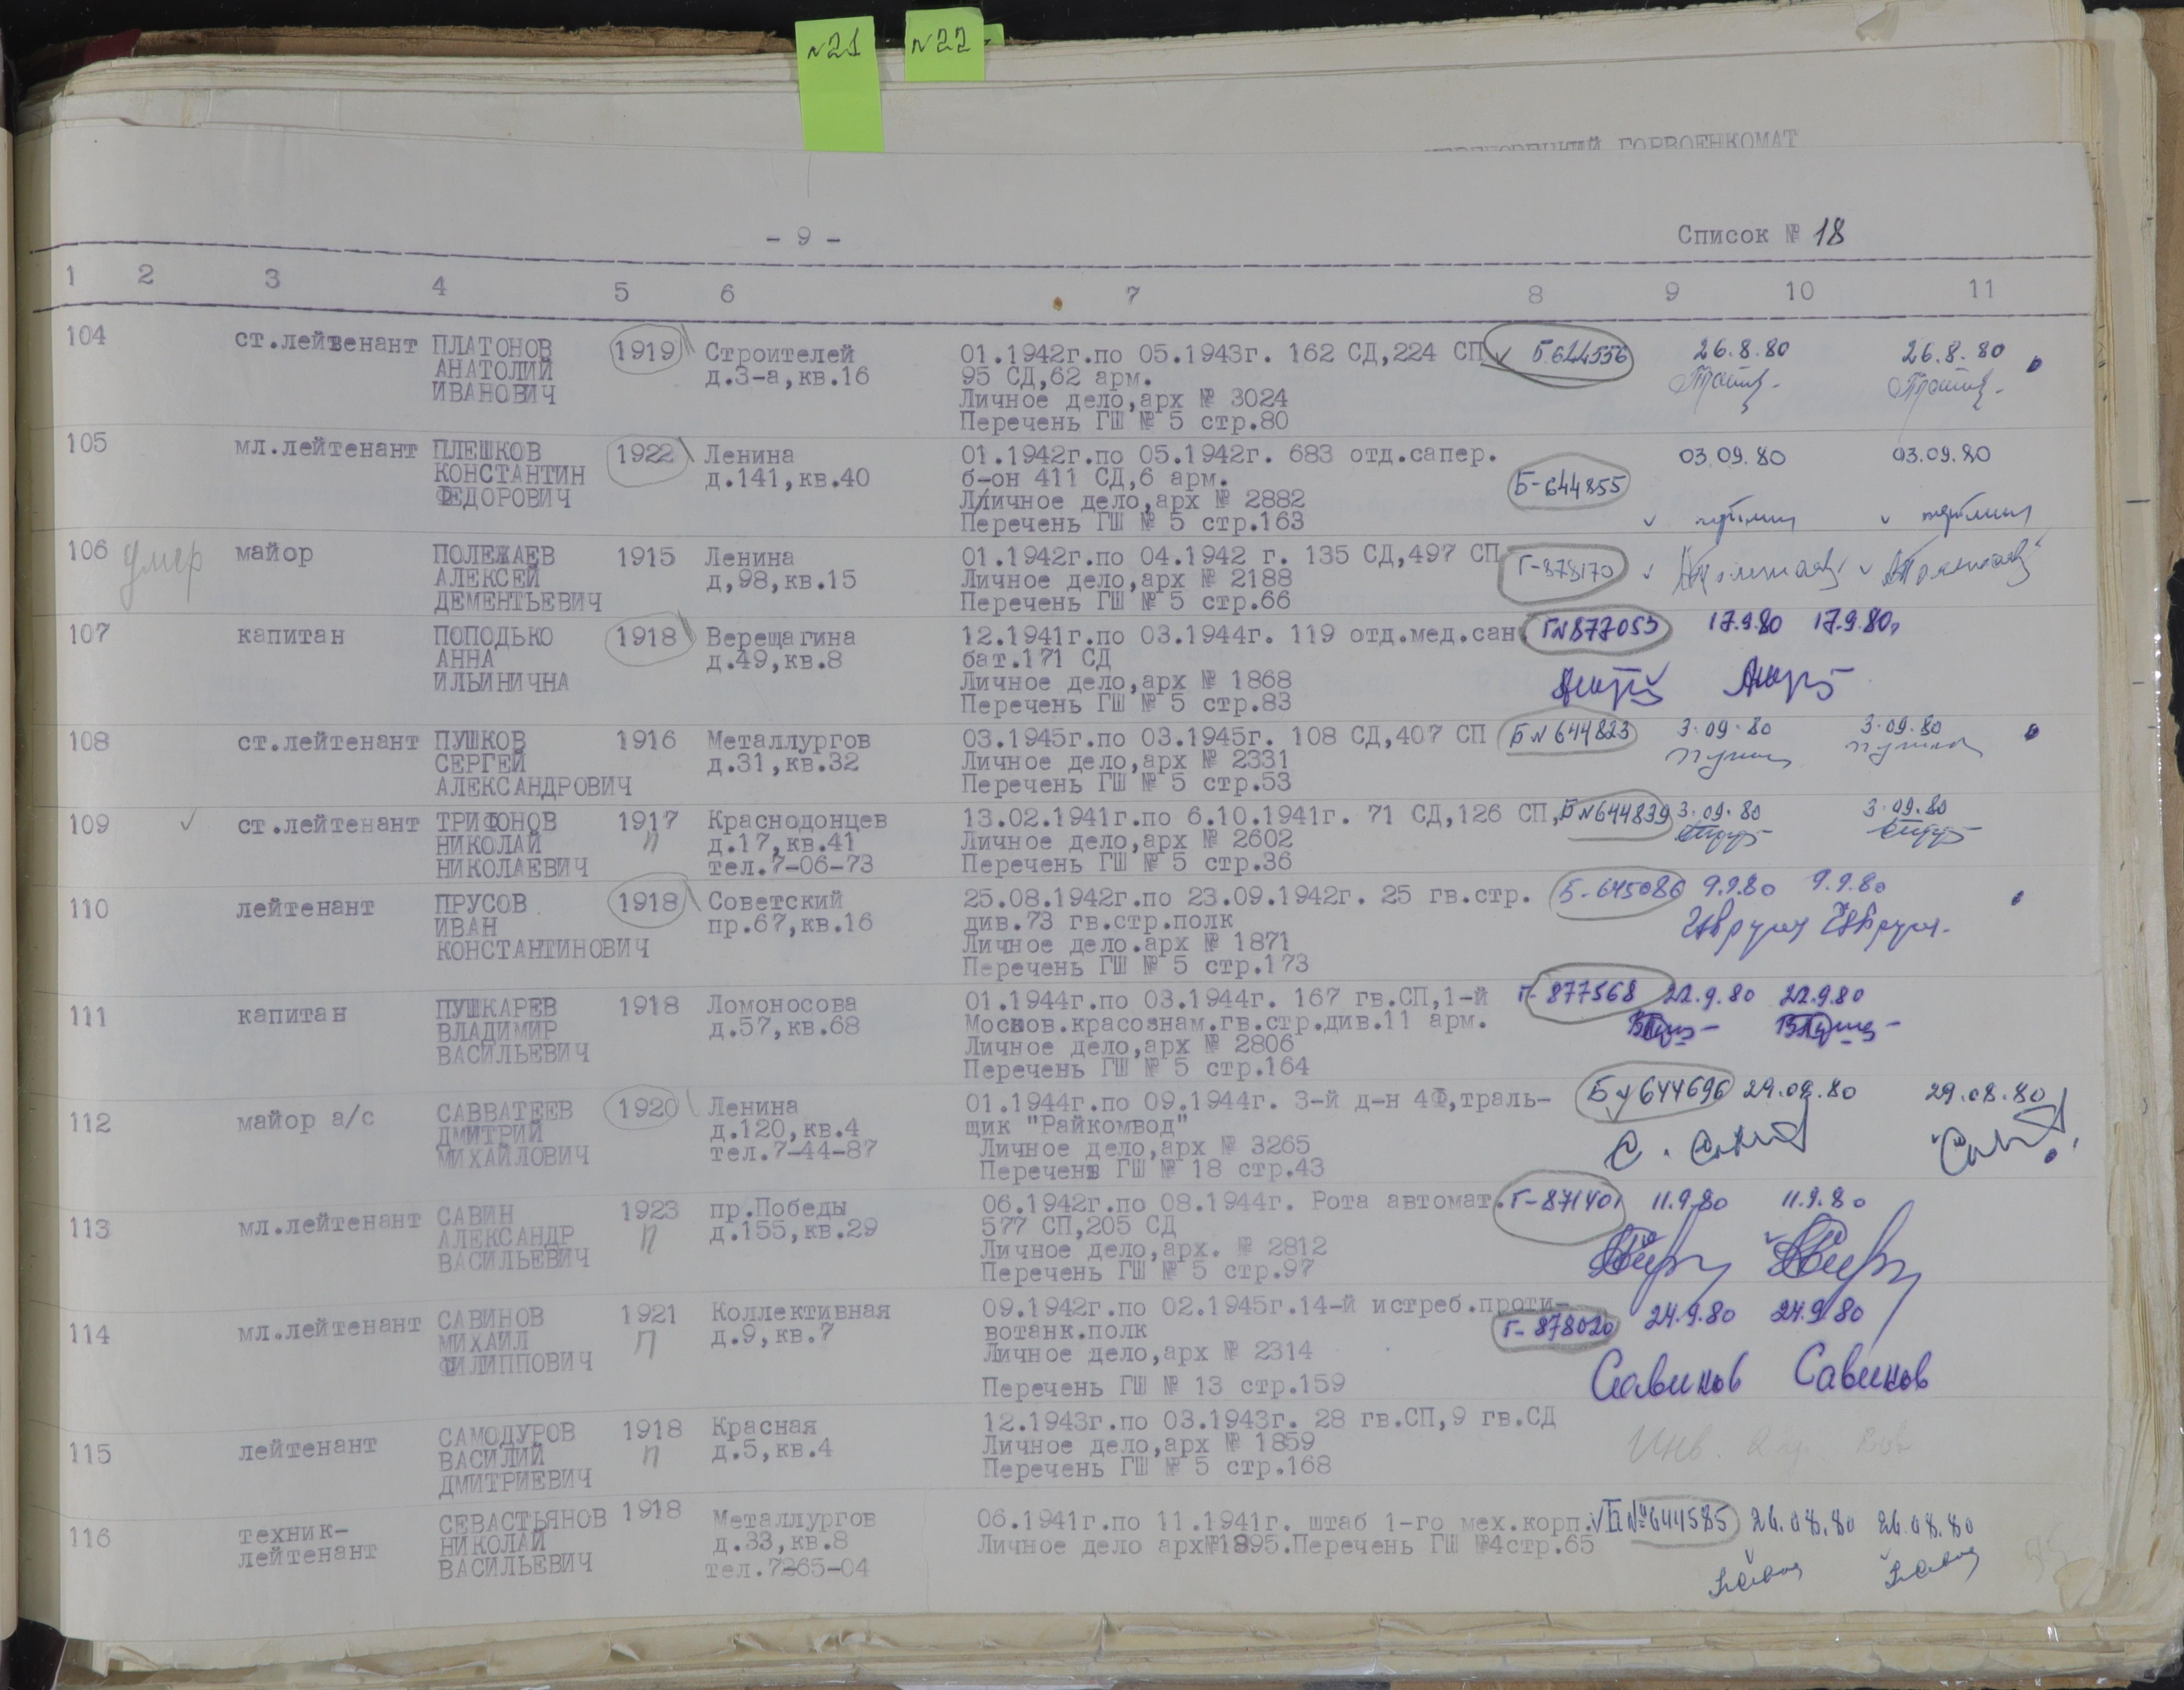 №21
№22
ГОРВОЕНКОМАТ
- 9 -
Список № 18
1 2 3 4 5 6 7 8 9 10 11
104 ст.лейтенант ПЛАТОНОВ 1919 Строителей 01.1942г.по 05.1943г. 162 СД,224 СП Б644556 26.8.80 26.8.80
АНАТОЛИЙ д.3-а,кв.16 95 СД,62 арм.
ИВАНОВИЧ Личное дело,арх № 3024
Перечень ГШ № 5 стр.80
105 мл.лейтенант ПЛЕШКОВ 1922 Ленина 01.1942г.по 05.1942г. 683 отд.сапер. 03.09.80 03.09.80
КОНСТАНТИН д.141,кв.40 б-он 411 СД,6 арм. Б-644855
ФЕДОРОВИЧ Личное дело,арх № 2882
Перечень ГШ № 5 стр.163
106 умер майор ПОЛЕЖАЕВ 1915 Ленина 01.1942г.по 04.1942 г. 135 СД,497 СП Г-878170
АЛЕКСЕЙ д,98,кв.15 Личное дело,арх № 2188
ДЕМЕНТЬЕВИЧ Перечень ГШ № 5 стр.66
107 капитан ПОПОДЬКО 1918 Верещагина 12.1941г.по 03.1944г. 119 отд.мед.сан. Г№877053 17.9.80 17.9.80,
АННА д.49,кв.8 бат.171 СД
ИЛЬИНИЧНА Личное дело,арх № 1868
Перечень ГШ № 5 стр.83
108 ст.лейтенант ПУШКОВ 1916 Металлургов 03.1945г.по 03.1945г. 108 СД,407 СП Б№644823 3.09.80 3.09.80
СЕРГЕЙ д.31,кв.32 Личное дело,арх № 2331
АЛЕКСАНДРОВИЧ Перечень ГШ № 5 стр.53
109 ✓ ст.лейтенант ТРИФОНОВ 1917 Краснодонцев 13.02.1941г.по 6.10.1941г. 71 СД,126 СП, Б№644839 3.09.80 3.09.80
НИКОЛАЙ П д.17,кв.41 Личное дело,арх № 2602
НИКОЛАЕВИЧ тел.7-06-73 Перечень ГШ № 5 стр.36
110 лейтенант ПРУСОВ 1918 Советский 25.08.1942г.по 23.09.1942г. 25 гв.стр. Б-645086 9.9.80 9.9.80
ИВАН пр.67,кв.16 див.73 гв.стр.полк
КОНСТАНТИНОВИЧ Личное дело.арх № 1871
Перечень ГШ № 5 стр.173
111 капитан ПУШКАРЕВ 1918 Ломоносова 01.1944г.по 03.1944г. 167 гв.СП,1-й Г-877568 22.9.80 22.9.80
ВЛАДИМИР д.57,кв.68 Москов.красознам.гв.стр.див.11 арм.
ВАСИЛЬЕВИЧ Личное дело,арх № 2806
Перечень ГШ № 5 стр.164
112 майор а/с САВВАТЕЕВ 1920 Ленина 01.1944г.по 09.1944г. 3-й д-н 4Ф,траль- Б 644696 29.08.80 29.08.80
ДМИТРИЙ д.120,кв.4 щик "Райкомвод"
МИХАЙЛОВИЧ тел.7-44-87 Личное дело,арх № 3265
Перечень ГШ № 18 стр.43
113 мл.лейтенант САВИН 1923 пр.Победы 06.1942г.по 08.1944г. Рота автомат. Г-871401 11.9.80 11.9.80
АЛЕКСАНДР П д.155,кв.29 577 СП,205 СД
ВАСИЛЬЕВИЧ Личное дело,арх. № 2812
Перечень ГШ № 5 стр.97
114 мл.лейтенант САВИНОВ 1921 Коллективная 09.1942г.по 02.1945г.14-й истреб.проти- Г-878020 24.9.80 24.9.80
МИХАИЛ П д.9,кв.7 вотанк.полк
ФИЛИППОВИЧ Личное дело,арх № 2314 Савинов Савинов
Перечень ГШ № 13 стр.159
115 лейтенант САМОДУРОВ 1918 Красная 12.1943г.по 03.1943г. 28 гв.СП,9 гв.СД
ВАСИЛИЙ П д.5,кв.4 Личное дело,арх № 1859 Инв.
ДМИТРИЕВИЧ Перечень ГШ № 5 стр.168
116 техник- СЕВАСТЬЯНОВ 1918 Металлургов 06.1941г.по 11.1941г. штаб 1-го мех.корп. Б№644585 26.08.80 26.08.80
лейтенант НИКОЛАЙ д.33,кв.8 Личное дело арх№1895.Перечень ГШ №4стр.65
ВАСИЛЬЕВИЧ тел.7265-04